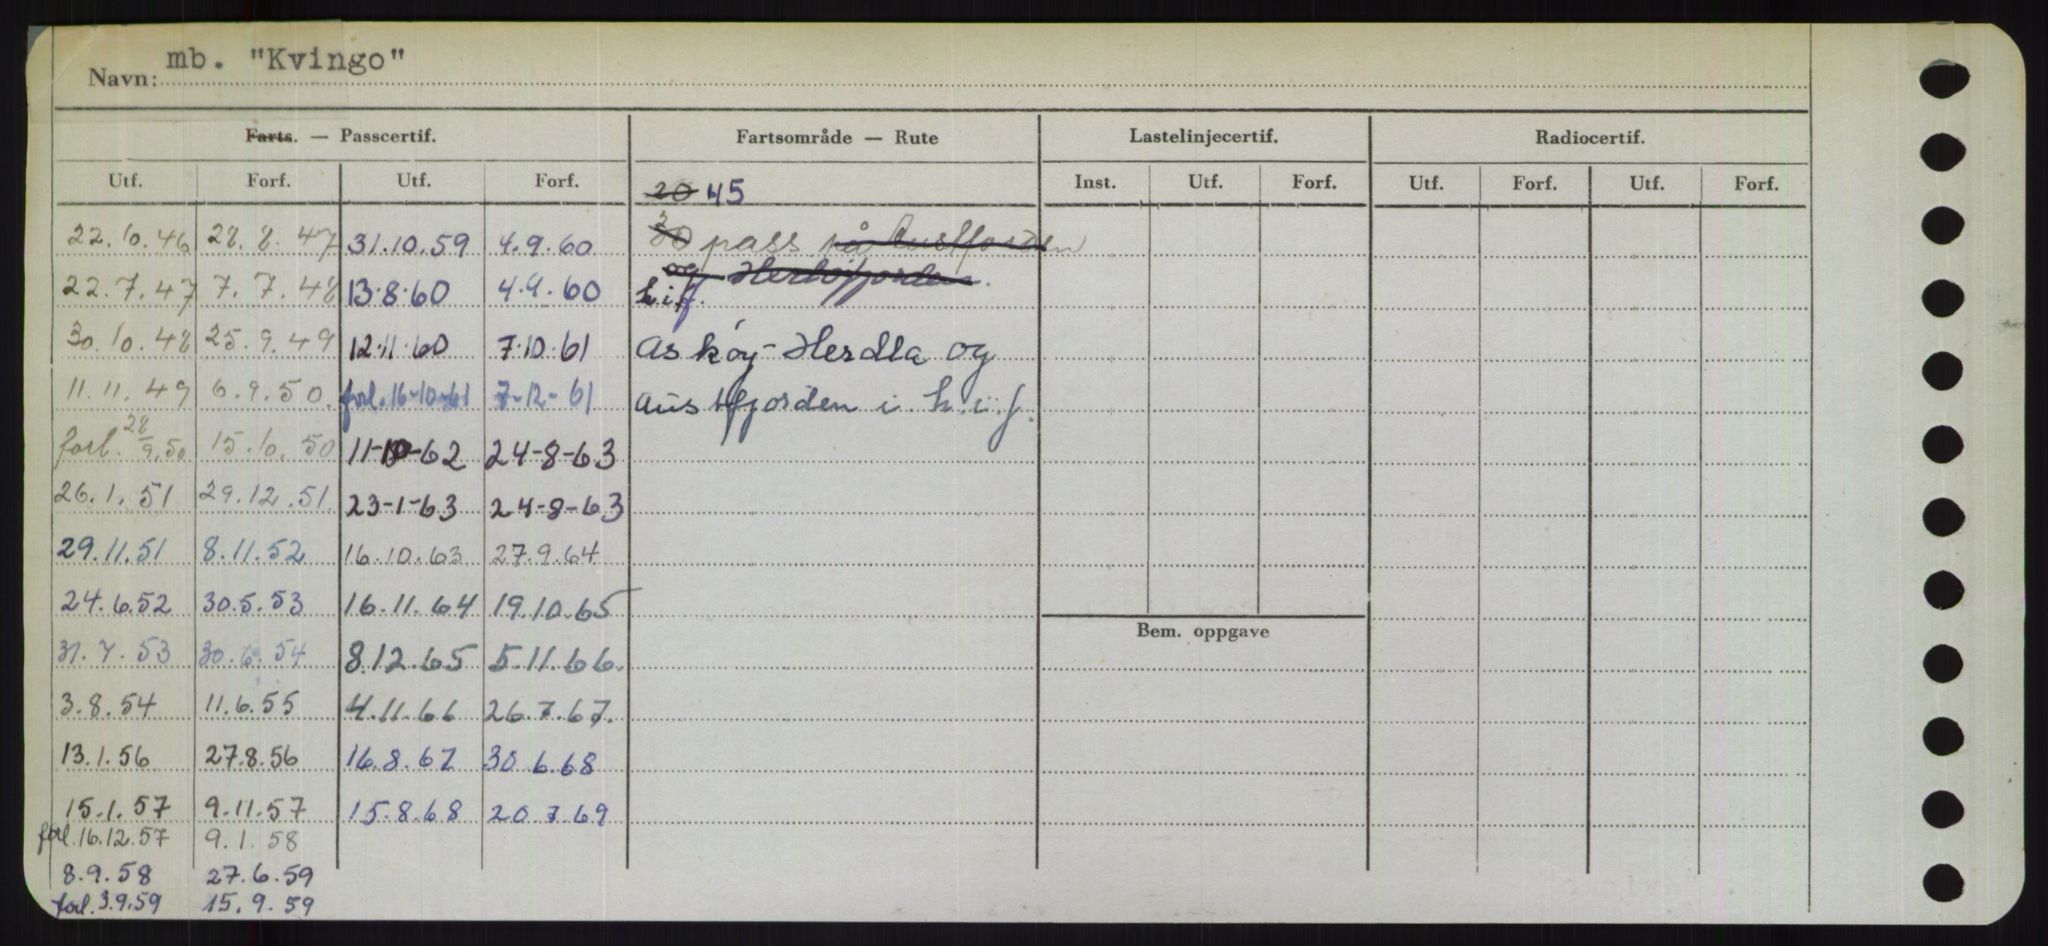 Navn: mb. "Kvingo"
Farts. — Passcertif. Fartsområde — Rute Lastelinjecertif. Radiocertif.
Utf. Forf. Utf. Forf. 20 45 Inst. Utf. Forf. Utf. Forf. Utf. Forf.
22.10.46 28.8.47 31.10.59 4.9.60 30 pass på Austfjorden
22.7.47 7.7.48 13.8.60 4.9.60 og Herløfjorden.
h.i.f.
30.10.48 25.9.49 12.11.60 7.10.61 Askøy-Herdla og
11.11.49 6.9.50. forl. 16-10-61 7-12-61 Austfjorden i h.i.f.
forl. 28/9.50 15.10.50 11-10-62 24-8-63
26.1.51 29.12.51. 23-1-63 24-8-63
29.11.51 8.11.52 16.10.63 27.9.64
24.6.52 30.5.53 16.11.64 19.10.65
31.7.53 30.6.54 8.12.65 5.11.66.
Bem. oppgave
3.8.54 11.6.55 4.11.66 26.7.67.
13.1.56 27.8.56 16.8.67 30 6.68
15.1.57 9.11.57 15.8.68 20.7.69
forl. 16.12.57 9.1.58
8.9.58 27.6.59
forl. 3.9.59 15.9.59